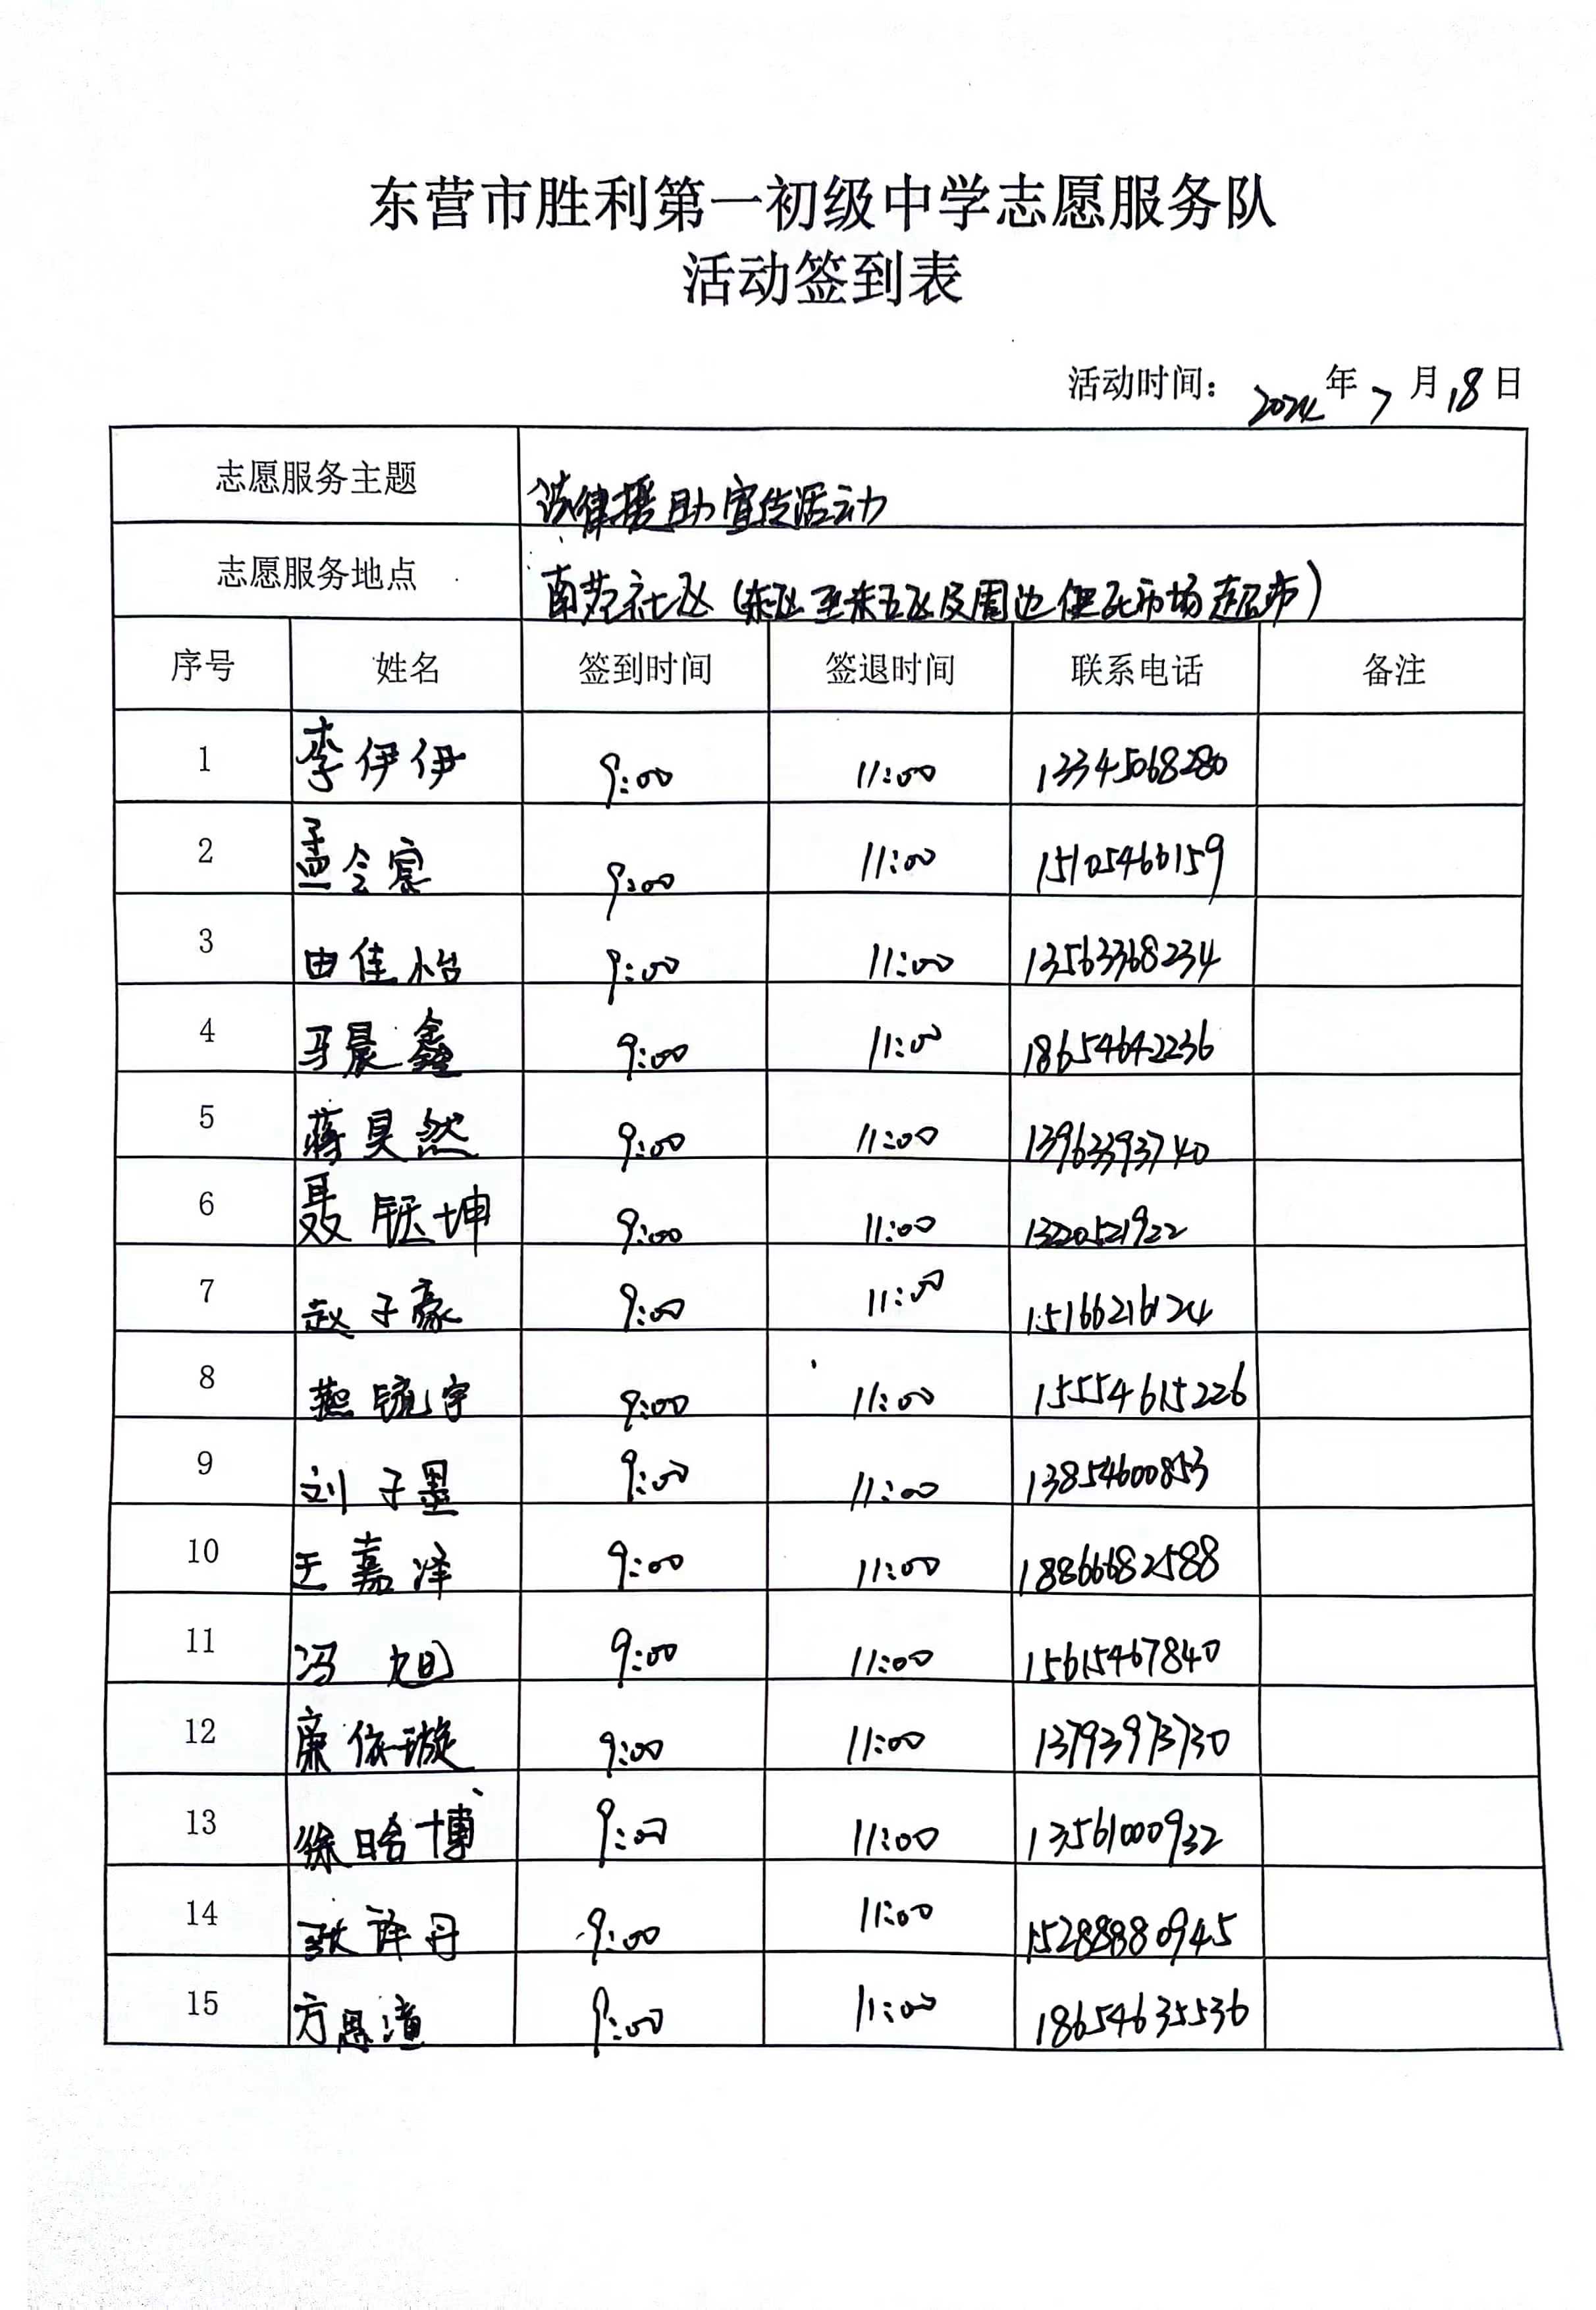 东营市胜利第一初级中学志愿服务队
活动签到表
活动时间: 2024 年 7 月 18 日
志愿服务主题 法律援助宣传活动
志愿服务地点 南苑社区(东区至东五区及周边便民市场超市)
序号 姓名 签到时间 签退时间 联系电话 备注
1 李伊伊 9:00 11:00 13345068280
2 孟令宸 9:00 11:00 15105466159
3 由佳怡 9:00 11:00 13563368234
4 马晨鑫 9:00 11:00 18654642236
5 蒋昊然 9:00 11:00 13963393740
6 聂钰坤 9:00 11:00
7 赵子豪 9:00 11:00 15166216124
8 燕锍宇 9:00 11:00 15554615226
9 刘子墨 9:00 11:00 13854600853
10 王嘉泽 9:00 11:00 18866682588
11 冯旭 9:00 11:00 15615467840
12 廉依璇 9:00 11:00 13793973730
13 徐晗博 9:00 11:00 13561000932
14 9:00 11:00 15288880945
15 方恩渲 9:00 11:00 18654635536